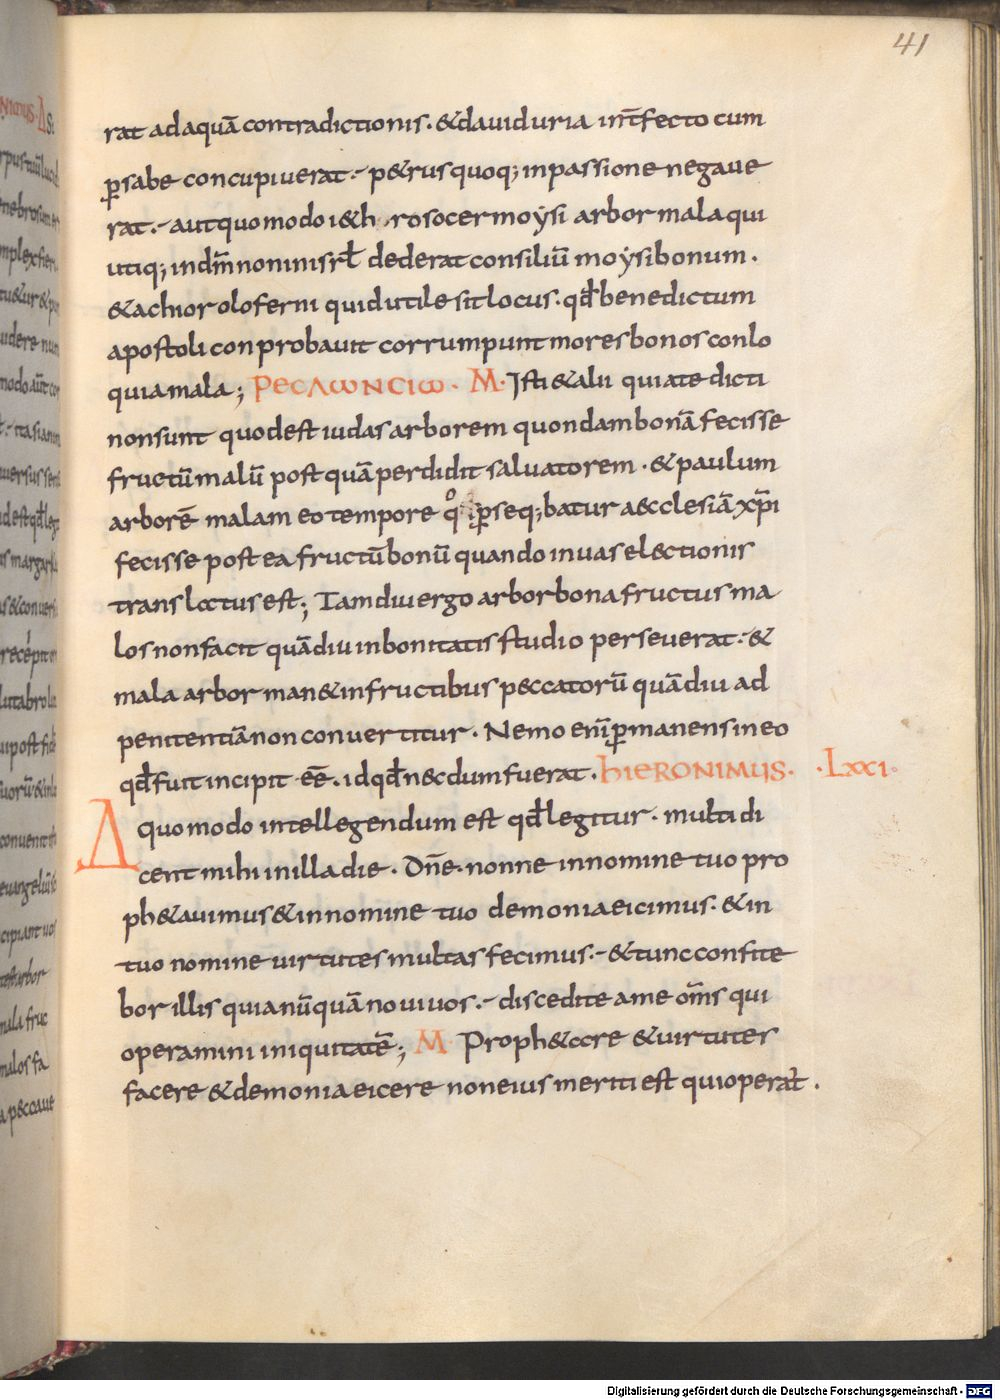 41
rat ad aquā contradictionis. & dauid uria int̄fecto cum
p̲sabe concupiuerat.- p&rus quoq; in passione negaue
rat.- aut quomodo i&h rosocer moẏsi arbor mala qui
utiq; in dm̄ non in isrł dederat consiliū moẏsi bonum.
& achior oloferni quid utile sit locus. qđ benedictum
apostoli conprobauit corrumpunt mores bonos conlo
quia mala; ΡΕCΛΩΝCΙΩ. M. Isti & alii quia te dicti
non sunt quod est iudas arborem quondam bonā fecisse
fructū malū postquā perdidit saluatorem. & paulum
arborē malam eo tempore qͦ p̲seq;batur aecclesiā xp̄i
fecisse postea fructū bonū quando in uas el&ctionis
translatus est; Tamdiu ergo arbor bona fructus ma
los non facit quādiu in bonitatis studio perseuerat.- &
mala arbor man& in fructibus p&ccatorū quādiu ad
penitentiā non conuertitur. Nemo eni̅ p̲manens in eo
qđ fuit incipit ēē. id qđ n&cdum fuerat. hIERONIMUS. .LXXI.
A quomodo intellegendum est qđ legitur. multi di
cent mihi in illa die. Dn̄e. nonne in nomine tuo pro
ph&auimus & in nomine tuo demonia eicimus. & in
tuo nomine uirtutes multas fecimus.- & tunc confite
bor illis quia nūquā noui uos.- discedite a me om̄s qui
operamini iniquitatē; M Proph&are & uirtutes
facere & demonia eicere non eius meriti est qui operat̄.